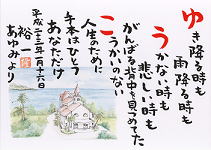 ゆき降る時も
雨降る時も
うかない時も
悲しい時も
がんばる背中を見つめてた
こうかいのない
人生のために
手本はひとつ
あなただけ
平成二十三年 月十六日
裕一
あゆみより